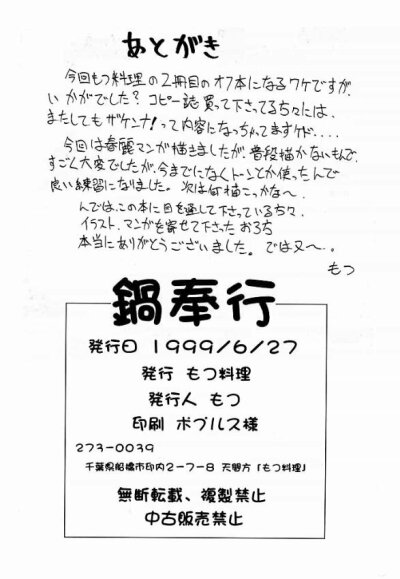 あとがき
今回もつ料理の2冊目のオフ本になるワケですが、
いかがでした?コピー誌買って下さってる方々には、
またしてもザケンナ!って内容になっちゃってますケド....
今回は春麗マンガ描きましたが、普段描かないもんで、
すごく大変でしたが、今までになくトーンとか使ったんで
良い練習になりました。次は何描こっかな〜、
んでは、この本に目を通して下さっている方々、
イラスト、マンガを寄せて下さった お方
本当にありがとうございました。では又〜。
もつ
鍋奉行
発行日 1999/6/27
発行 もつ料理
発行人 もつ
印刷 ポプルス様
273-0039
千葉県船橋市印内2-7-8 天野方「もつ料理」
無断転載、複製禁止
中古販売禁止